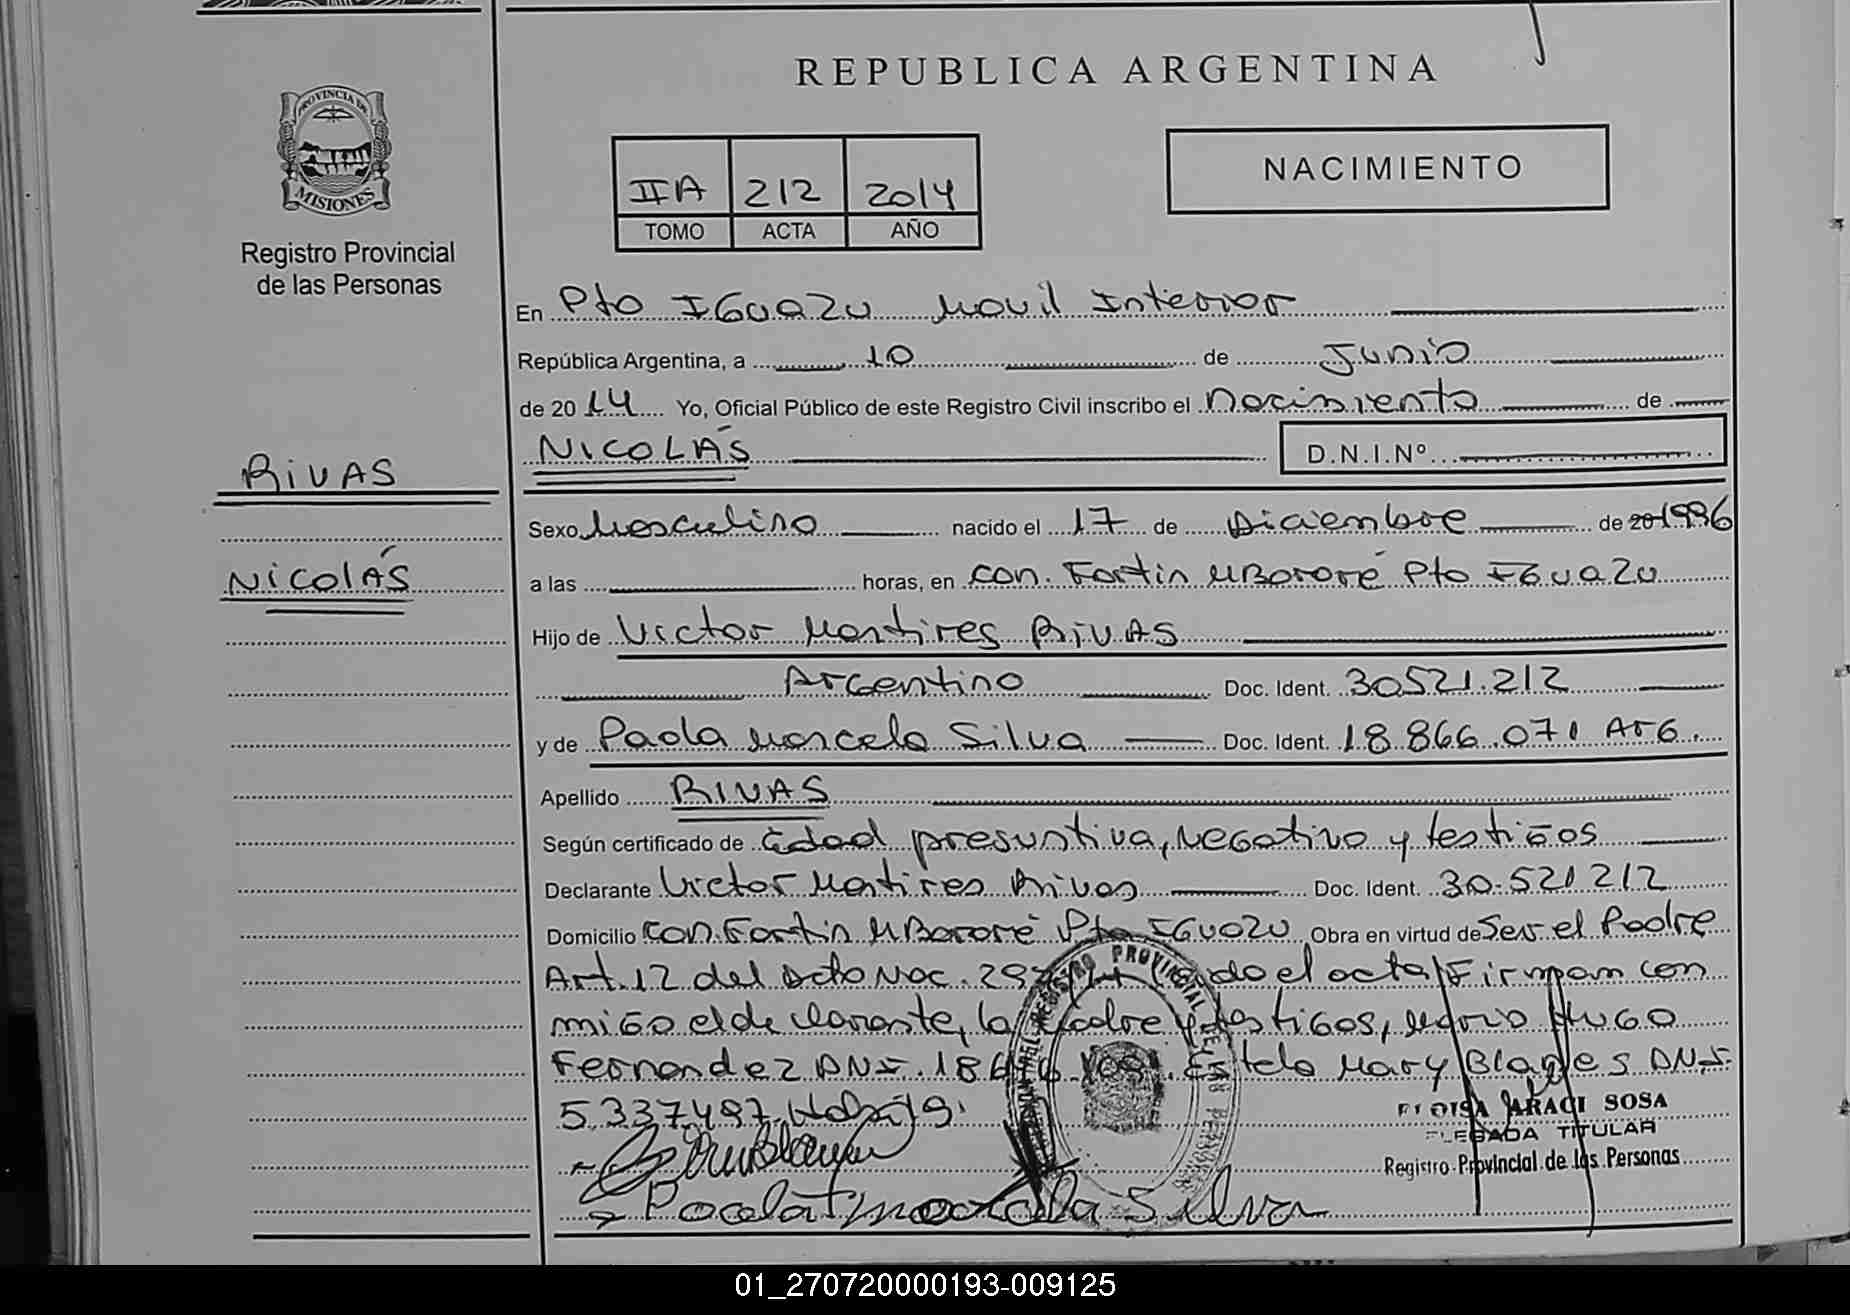 REPUBLICA ARGENTINA
PROVINCIA DE
MISIONES
Registro Provincial
de las Personas
NACIMIENTO
IIA 212 2014
TOMO ACTA AÑO
En Pto IGuazu Movil Interior
República Argentina, a 10 de Junio
de 2014 Yo, Oficial Público de este Registro Civil inscribo el Nacimiento de
NICOLÁS D.N.I.Nº
RIVAS
NICOLÁS
Sexo Masculino nacido el 17 de Diciembre de 20 1996
a las horas, en Con. Fortin MBororé Pto IGuazu
Hijo de Victor Martires RIVAS
Argentino Doc. Ident. 30521.212
y de Paola Marcela Silva Doc. Ident. 18.866.071 ArG.
Apellido RIVAS
Según certificado de Edad presuntiva, Negativo y testiGos
Declarante Victor Martires Rivas Doc. Ident. 30.521212
Domicilio Con. Fortin MBororé Pto IGuazu Obra en virtud de Ser el Padre
Art. 12 del Dcto Nac. el acta Firman con
miGo el declarante, la Madre y testiGos, Mario HuGo
Fernandez DNI. Estela Mary Blanes DNI.
5.337.497
Paola Marcela Silva
REGISTRO PROVINCIAL DE LAS PERSONAS
ELOISA JARACI SOSA
DELEGADA TITULAR
Registro Provincial de las Personas
01_270720000193-009125